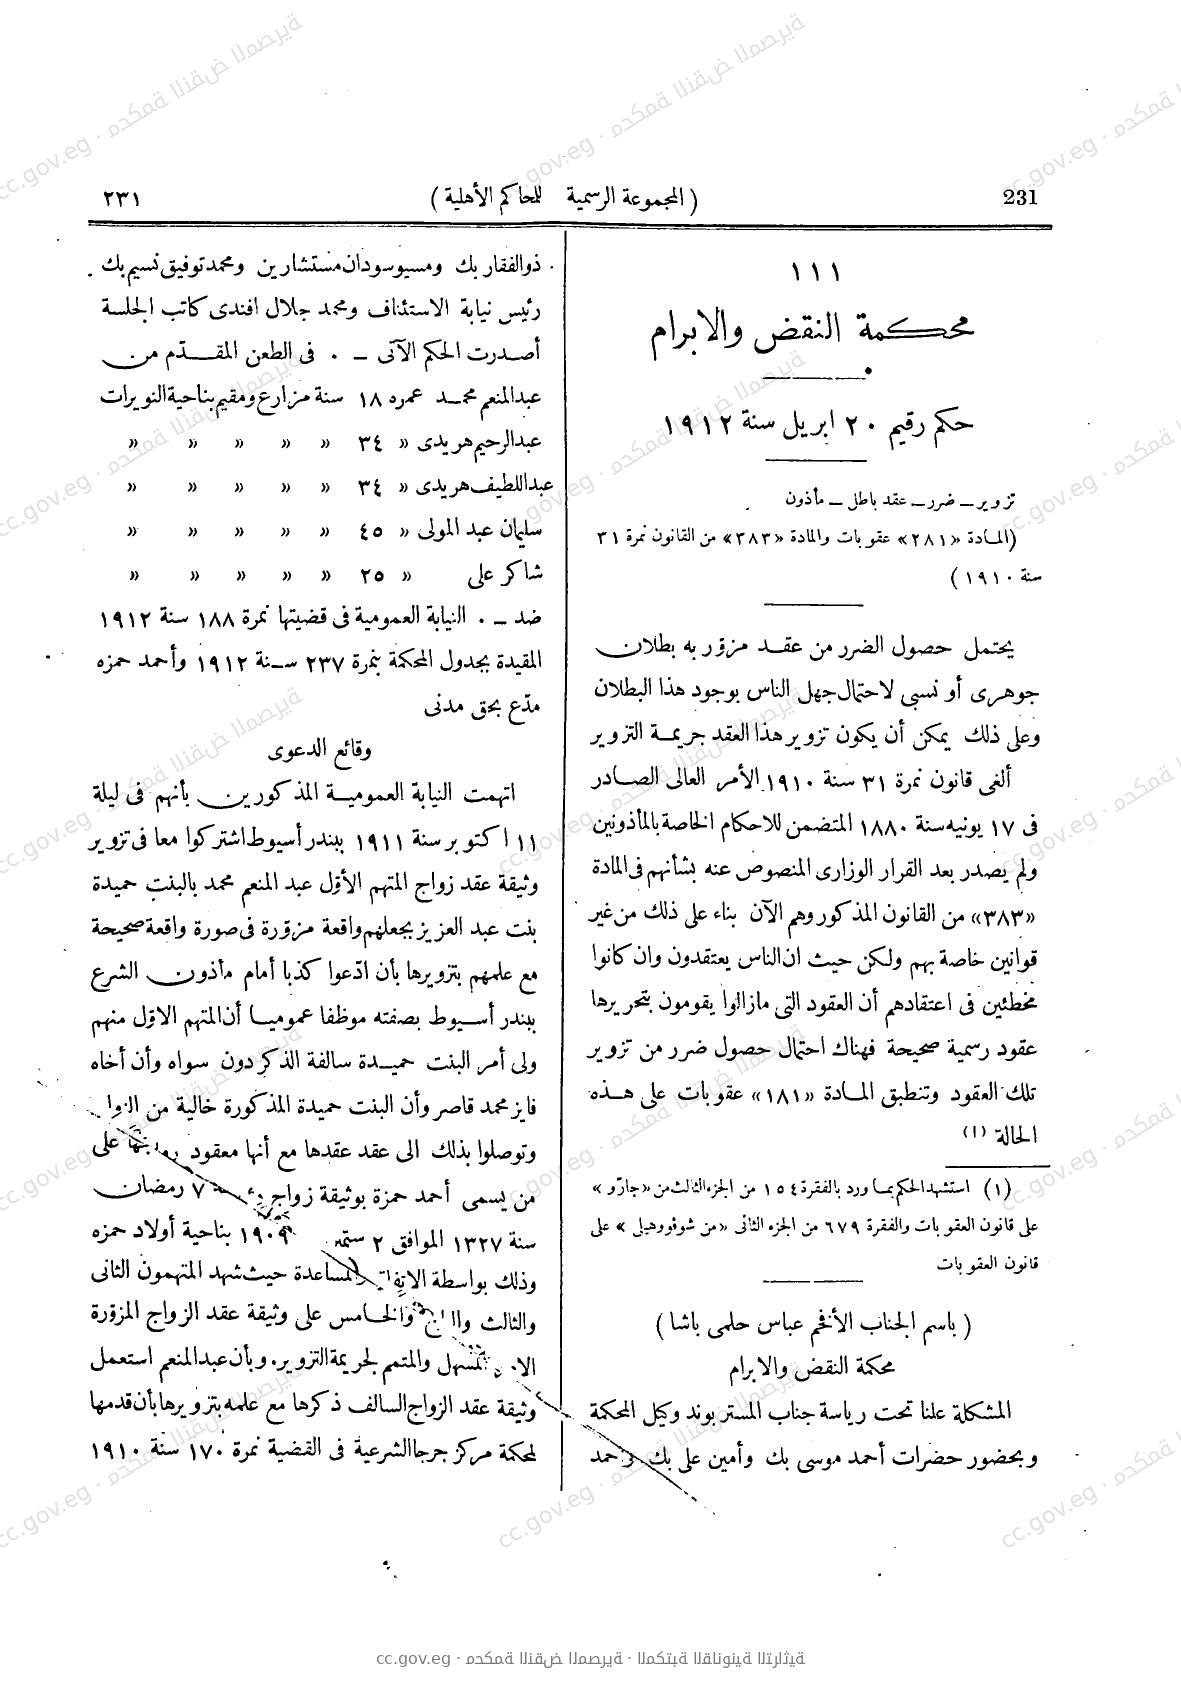 231
( المجموعة الرسمية للمحاكم الأهلية )
٢٣١
١١١
محكمة النقض والابرام
حكم رقيم ٢٠ ابريل سنة ١٩١٢
تزوير – ضرر – عقد باطل – مأذون
(المادة «٢٨١» عقوبات والمادة «٣٨٣» من القانون نمرة ٣١
سنة ١٩١٠)
يحتمل حصول الضرر من عقد مزوّر به بطلان
جوهرى أو نسبى لاحتمال جهل الناس بوجود هذا البطلان
وعلى ذلك يمكن أن يكون تزوير هذا العقد جريمة التزوير
ألغى قانون نمرة ٣١ سنة ١٩١٠ الأمر العالى الصادر
فى ١٧ يونيه سنة ١٨٨٠ المتضمن للاحكام الخاصة بالمأذونين
ولم يصدر بعد القرار الوزارى المنصوص عنه بشأنهم فى المادة
«٣٨٣» من القانون المذكور وهم الآن بناء على ذلك من غير
قوانين خاصة بهم ولكن حيث ان الناس يعتقدون وان كانوا
مخطئين فى اعتقادهم أن العقود التى مازالوا يقومون بتحريرها
عقود رسمية صحيحة فهناك احتمال حصول ضرر من تزوير
تلك العقود وتنطبق المادة «١٨١» عقوبات على هذه
الحالة (١)
(١) استشهد الحكم بما ورد بالفقرة ١٥٤ من الجزء الثالث من «جارّو»
على قانون العقوبات والفقرة ٦٧٩ من الجزء الثانى «من شوفو وهيلى» على
قانون العقوبات
( باسم الجناب الأفخم عباس حلمى باشا )
محكمة النقض والابرام
المشكلة علنا تحت رياسة جناب المستر بوند وكيل المحكمة
وبحضور حضرات أحمد موسى بك وأمين على بك وأحمد
ذو الفقار بك ومسيو سودان مستشارين ومحمد توفيق نسيم بك
رئيس نيابة الاستئناف ومحمد جلال افندى كاتب الجلسة
أصدرت الحكم الآتى – ٠ فى الطعن المقدّم من
عبدالمنعم محمد عمره ١٨ سنة مزارع ومقيم بناحية النويرات
عبدالرحيم هريدى « ٣٤ « « « « «
عبداللطيف هريدى « ٣٤ « « « « «
سليمان عبد المولى « ٤٥ « « « « «
شاكر على « ٢٥ « « « « «
ضد – ٠ النيابة العمومية فى قضيتها نمرة ١٨٨ سنة ١٩١٢
المقيدة بجدول المحكمة بنمرة ٢٣٧ سنة ١٩١٢ وأحمد حمزه
مدّع بحق مدنى
وقائع الدعوى
اتهمت النيابة العمومية المذكورين بأنهم فى ليلة
١١ اكتوبر سنة ١٩١١ ببندر أسيوط اشتركوا معا فى تزوير
وثيقة عقد زواج المتهم الأوّل عبد المنعم محمد بالبنت حميدة
بنت عبد العزيز بجعلهم واقعة مزوّرة فى صورة واقعة صحيحة
مع علمهم بتزويرها بأن ادّعوا كذبا أمام مأذون الشرع
ببندر أسيوط بصفته موظفا عموميا أن المتهم الاوّل منهم
ولى أمر البنت حميدة سالفة الذكر دون سواه وأن أخاه
فايز محمد قاصر وأن البنت حميدة المذكورة خالية من
وتوصلوا بذلك الى عقد عقدها مع أنها معقود على
من يسمى أحمد حمزة بوثيقة زواج ٧ رمضان
سنة ١٣٢٧ الموافق ٢ ١٩٠٩ بناحية أولاد حمزه
وذلك بواسطة المساعدة حيث شهد المتهمون الثانى
والثالث والخامس على وثيقة عقد الزواج المزوّرة
المسهل والمتمم لجريمة التزوير. وبأن عبدالمنعم استعمل
وثيقة عقد الزواج السالف ذكرها مع علمه بتزويرها بأن قدمها
لمحكمة مركز جرجا الشرعية فى القضية نمرة ١٧٠ سنة ١٩١٠